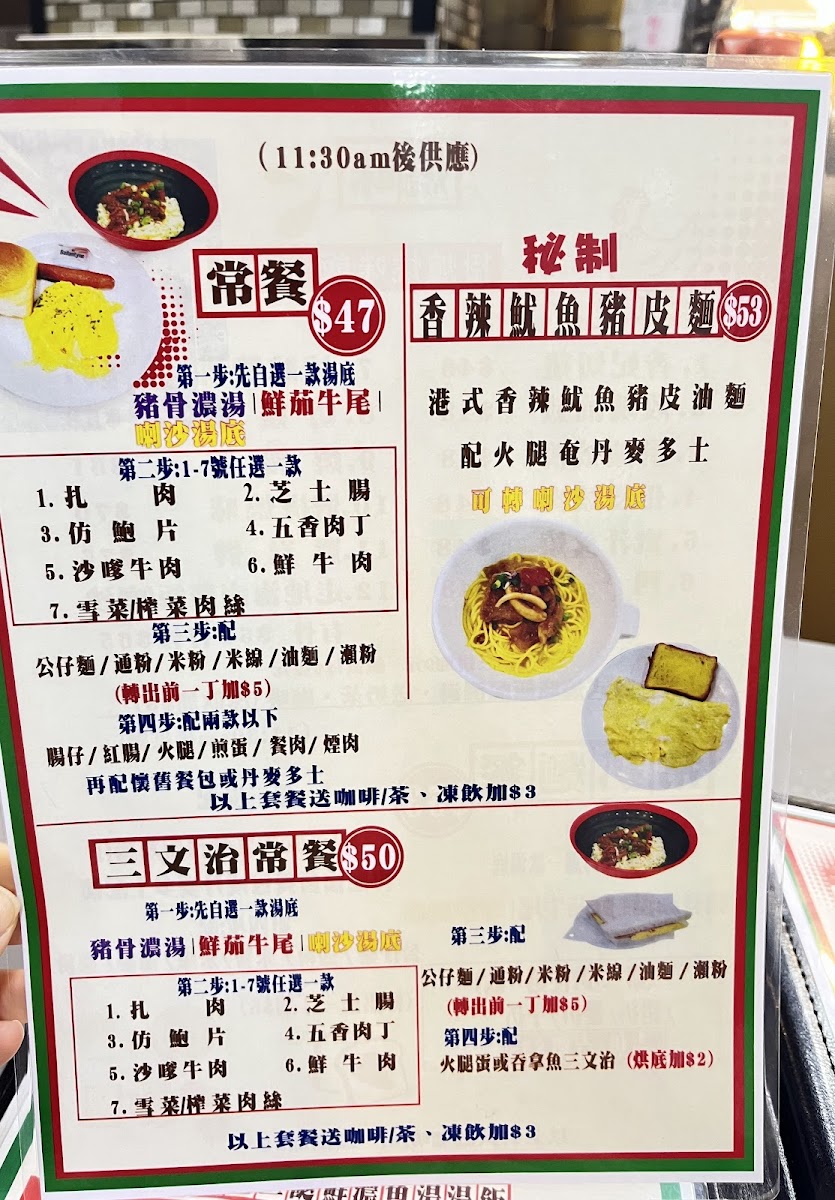 (11:30am後供應)
常餐
$47
第一步:先自選一款湯底
豬骨濃湯|鮮茄牛尾|
喇沙湯底
第二步:1-7號任選一款
1.扎 肉 2.芝士腸
3.仿鮑片 4.五香肉丁
5.沙嗲牛肉 6.鮮牛肉
7.雪菜/榨菜肉絲
第三步:配
公仔麵/通粉/米粉/米線/油麵/瀨粉
(轉出前一丁加$5)
第四步:配兩款以下
腸仔/紅腸/火腿/煎蛋/餐肉/煙肉
再配懷舊餐包或丹麥多士
秘制
香辣魷魚豬皮麵
$53
港式香辣魷魚豬皮油麵
配火腿奄丹麥多士
可轉喇沙湯底
以上套餐送咖啡/茶、凍飲加$3
三文治常餐
$50
第一步:先自選一款湯底
豬骨濃湯|鮮茄牛尾|喇沙湯底
第二步:1-7號任選一款
1.扎 肉 2.芝士腸
3.仿鮑片 4.五香肉丁
5.沙嗲牛肉 6.鮮牛肉
7.雪菜/榨菜肉絲
第三步:配
公仔麵/通粉/米粉/米線/油麵/瀨粉
(轉出前一丁加$5)
第四步:配
火腿蛋或吞拿魚三文治(烘底加$2)
以上套餐送咖啡/茶、凍飲加$3